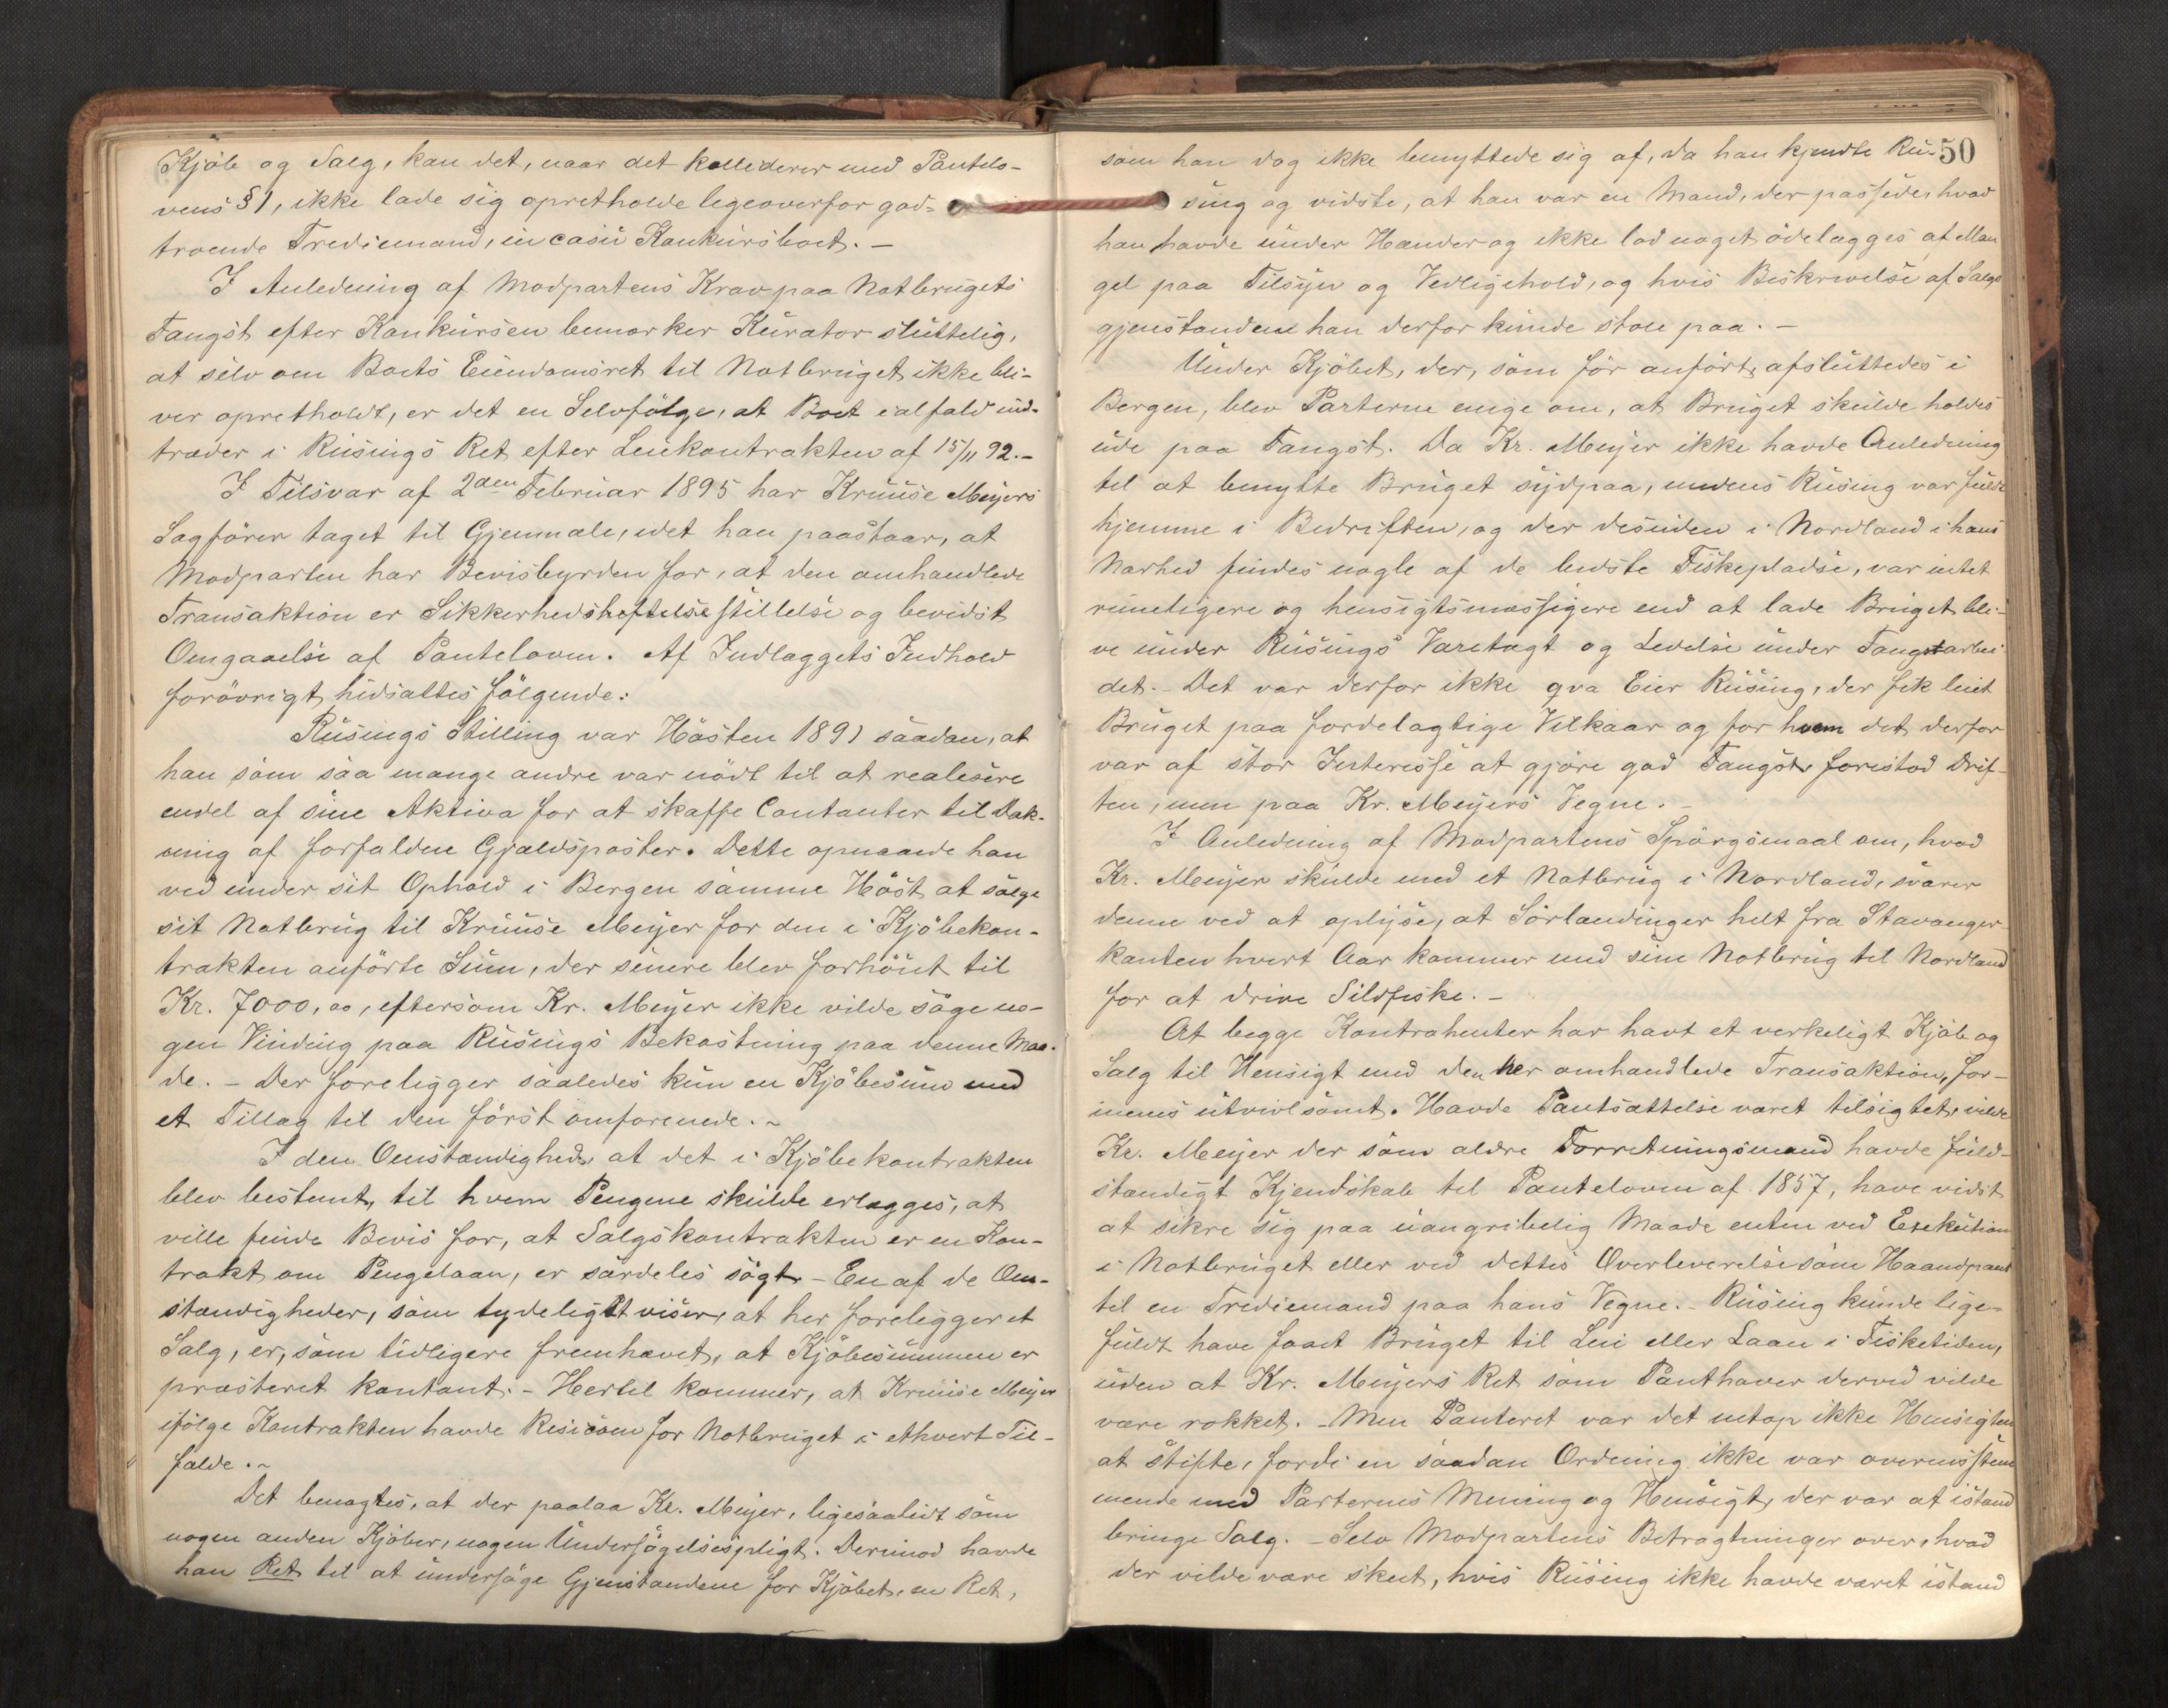 Kjöb og Salg, kan det, naar det kolliderer med Pantelo-
vens § 1, ikke lade sig opretholde ligeoverfor god-
troende Trediemand, in casu Konkursboet. -
I Anledning af Modpartens Krav paa Notbrugets
Fangst efter Konkursen bemærker Kurator sluttelig,
at selv om Boets Eiendomsret til Notbruget ikke bli-
ver opretholdt, er det en Selvfölge, at Boet ialfald ind-
træder i Rüsings Ret efter Leiekontrakten af 15/11 92. -
I Tilsvar af 2den Februar 1895 har Kruuse Meyers
Sagförer taget til Gjenmæle, idet han paastaar, at
Modparten har Bevisbyrden for, at den omhandlede
Transaktion er Sikkerhedsstillelse og bevidst
Omgaaelse af Panteloven. Af Indlæggets Indhold
forövrigt hidsættes fölgende:
Rüsings Stilling var Hösten 1891 saadan, at
han som saa mange andre var nödt til at realisere
endel af sine Aktiva for at skaffe Contanter til Dæk-
ning af forfaldne Gjældsposter. Dette opnaaede han
ved under sit Ophold i Bergen samme Höst at sælge
sit Notbrug til Kruuse Meyer for den i Kjöbekon-
trakten anförte Sum, der senere blev forhöiet til
Kr. 7000,00, eftersom Kr. Meyer ikke vilde söge no-
gen Vinding paa Rüsings Bekostning paa denne Maa-
de. - Der foreligger saaledes kun en Kjöbesum med
et Tillæg til den först omforenede. -
I den Omstændighed, at det i Kjöbekontrakten
blev bestemt, til hvem Pengene skulde erlægges, at
ville finde Bevis for, at Salgskontrakten er en Kon-
trakt om Pengelaan, er særdeles sögt. - En af de Om-
stændigheder, som tydeligst viser, at her foreligger et
Salg, er, som tidligere fremhævet, at Kjöbesummen er
præsteret kontant. - Hertil kommer, at Kruuse Meyer
ifölge Kontrakten havde Risicoen for Notbruget i ethvert Til-
fælde. -
Det benægtes, at der paalaa Kr. Meyer, ligesaalidt som
nogen anden Kjöber, nogen Undersögelsespligt. Derimod havde
han Ret til at undersöge Gjenstandene för Kjöbet, en Ret,
50
som han dog ikke benyttede sig af, da han kjendte Rü-
sing og vidste, at han var en Mand, der passede, hvad
han havde under Hænder og ikke lod noget ödelægges af Man
gel paa Tilsyn og Vedligehold, og hvis Beskrivelse af Salgs
gjenstandene han derfor kunde stole paa. -
Under Kjöbet, der, som för anfört, afsluttedes i
Bergen, blev Parterne enige om, at Bruget skulde holdes
ude paa Fangst. Da Kr. Meyer ikke havde Anledning
til at benytte Bruget sydpaa, medens Rüsing var fuldt
hjemme i Bedriften, og der desuden i Nordland i hans
Nærhed findes nogle af de bedste Fiskepladse, var intet
rimeligere og hensigtsmæssigere end at lade Bruget bli-
ve under Rüsings Varetægt og Ledelse under Fangstarbei-
det. - Det var derfor ikke qva Eier Rüsing, der fik leiet
Bruget paa fordelagtige Vilkaar og for hvem det derfor
var af stor Interesse at gjöre god Fangst, forestod Drif-
ten, men paa Kr. Meyers Vegne. -
I Anledning af Modpartens Spörgsmaal om, hvad
Kr. Meyer skulde med et Notbrug i Nordland, svarer
denne ved at oplyse, at Sörlændinger helt fra Stavanger
kanten hvert Aar kommer med sine Notbrug til Nordland
for at drive Sildfiske. -
At begge Kontrahenter har havt et virkeligt Kjöb og
Salg til Hensigt med den her omhandlede Transaktion, for-
menes utvivlsomt. Havde Pantsættelse været tilsigtet, vilde
Kr. Meyer der som ældre Forretningsmand havde fuld-
stændigt Kjendskab til Panteloven af 1857, have vidst
at sikre sig paa uangribelig Maade enten ved Exekution
i Notbruget eller ved dettes Overleverelse som Haandpant
til en Trediemand paa hans Vegne. - Rüsing kunde lige-
fuldt have faaet Bruget til Leie eller Laan i Fisketiden,
uden at Kr. Meyers Ret som Panthaver derved vilde
være rokket. - Men Panteret var det netop ikke Hensigten
at stifte, fordi en saadan Ordning ikke var overensstem
mende med Parternes Mening og Hensigt, der var at istand
bringe Salg. - Selv Modpartens Betragtninger over, hvad
der vilde være skeet, hvis Rüsing ikke havde været istand